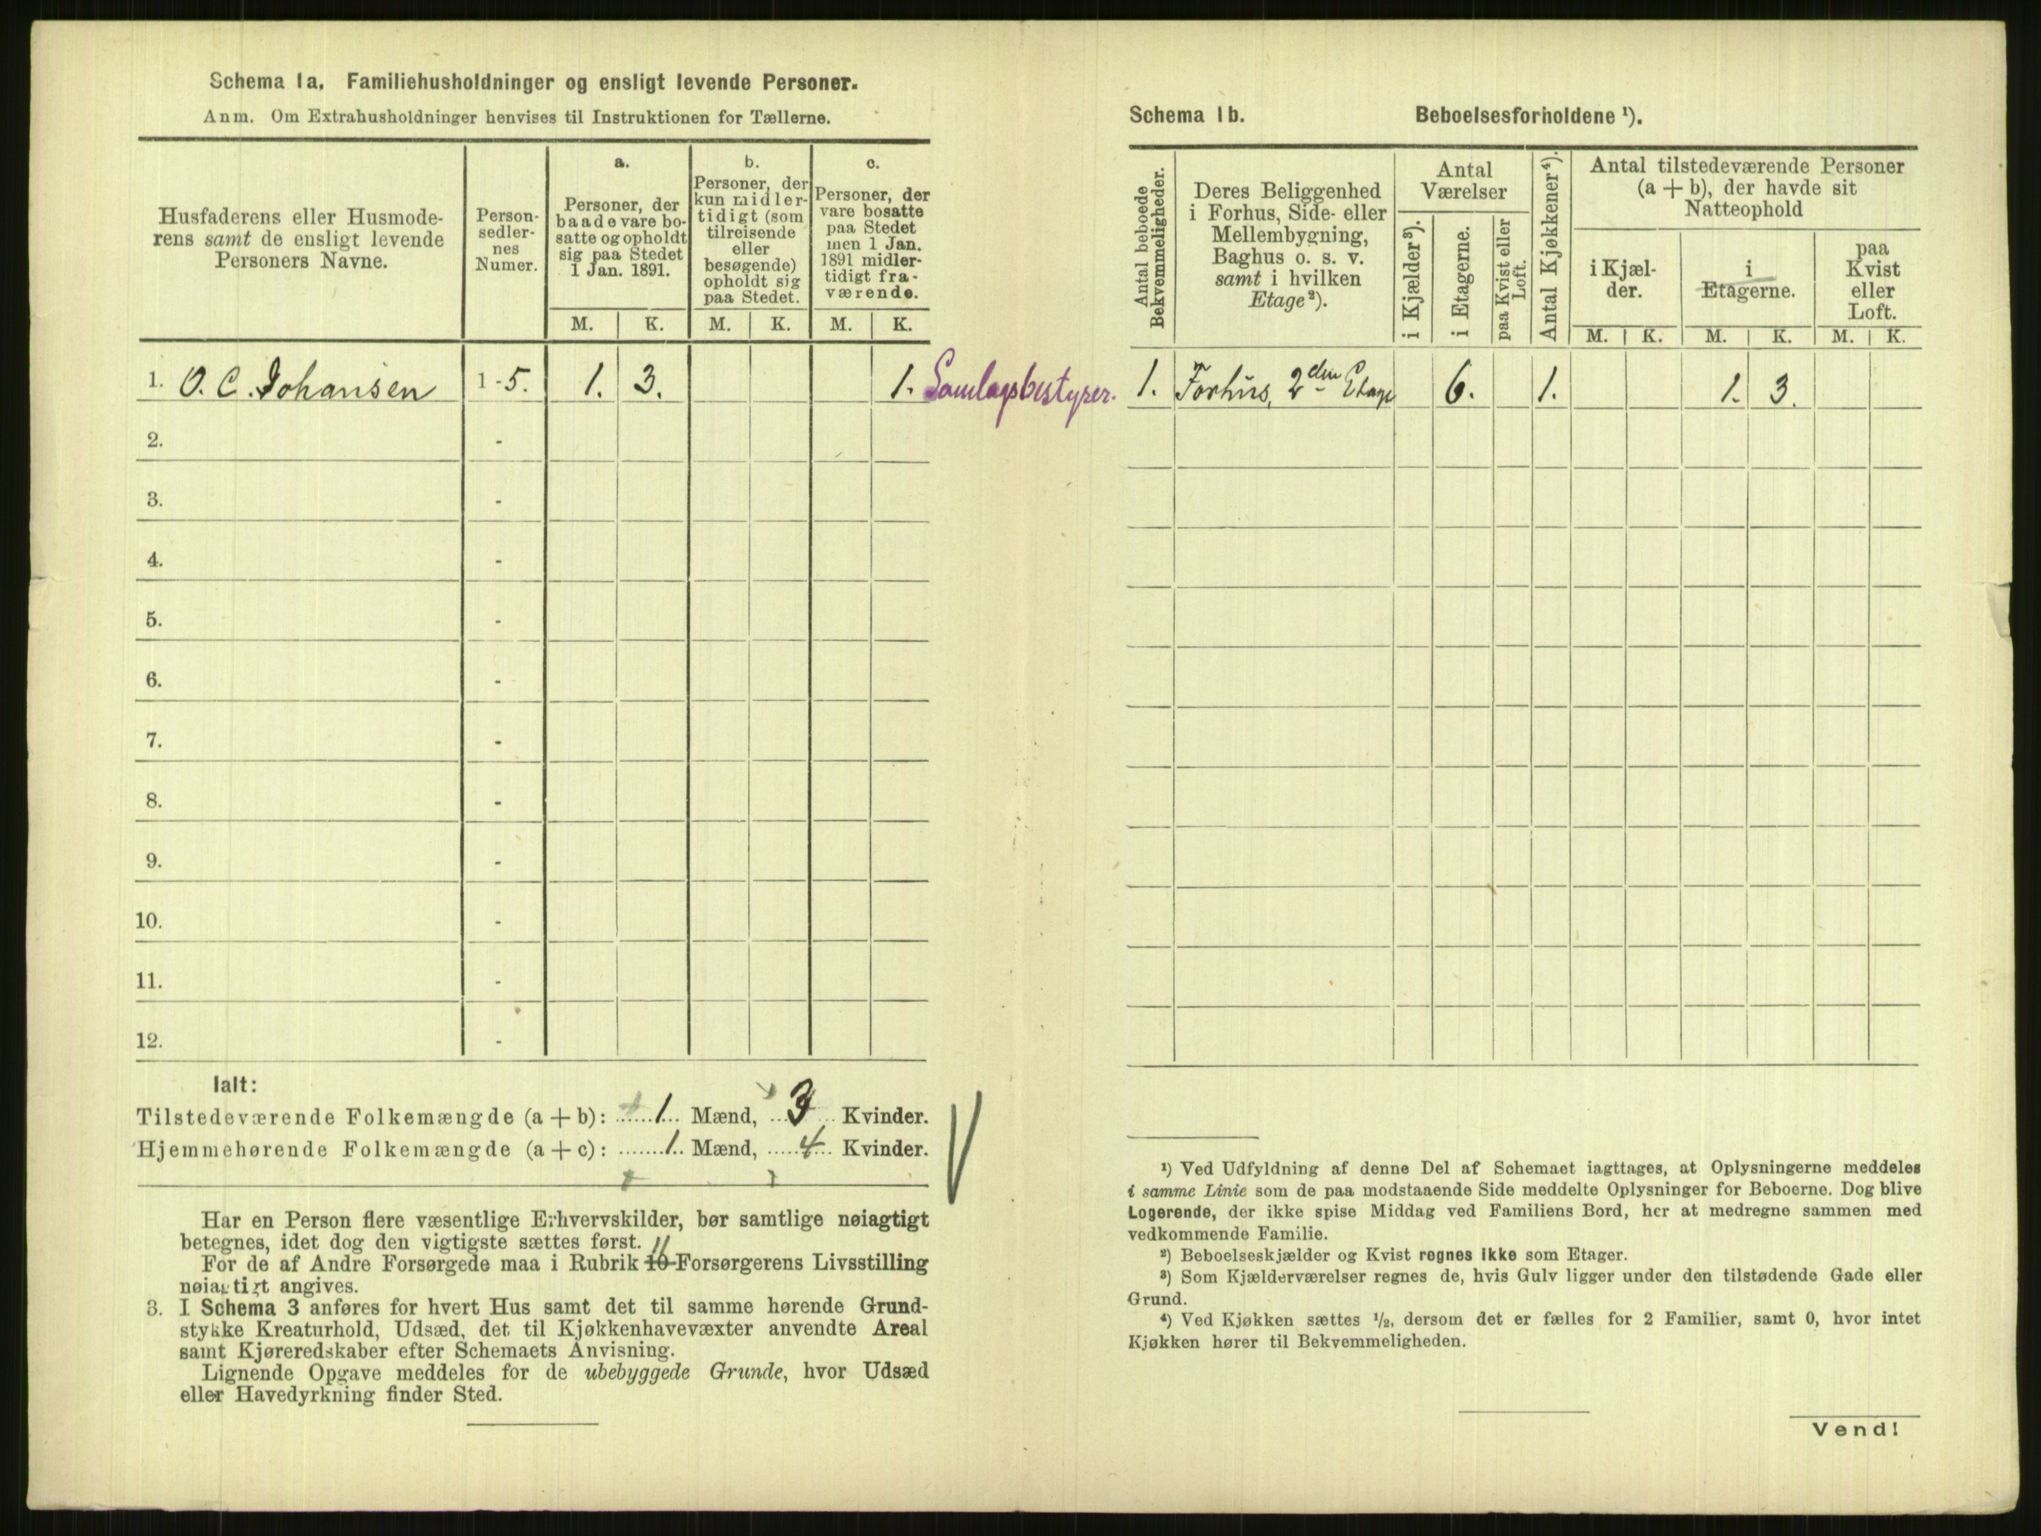 Schema 1a. Familiehusholdninger og ensligt levende Personer.
Anm. Om Extrahusholdninger henvises til Instruktionen for Tællerne.
Husfaderens eller Husmode-
rens samt de ensligt levende
Personers Navne.
Person-
sedler-
nes
Numer.
a.
Personer, der
baade vare bo-
satte og opholdt
sig paa Stedet
1 Jan. 1891.
b.
Personer, der
kun midler-
tidigt (som
tilreisende
eller
besøgende)
opholdt sig
paa Stedet.
c.
Personer, der
vare bosatte
paa Stedet
men 1 Jan.
1891 midler-
tidigt fra-
værende.
M. K. M. K. M. K.
1. O. C. Johansen 1-5. 1. 3. 1. Samlagsbestyrer.
2. -
3. -
4. -
5. -
6. -
7. -
8. -
9. -
10. -
11. -
12. -
Ialt:
Tilstedeværende Folkemængde (a + b): 1 Mænd, 3 Kvinder.
Hjemmehørende Folkemængde (a + c): 1 Mænd, 4 Kvinder.
Har en Person flere væsentlige Erhvervskilder, bør samtlige nøiagtigt
betegnes, idet dog den vigtigste sættes først.
11
For de af Andre Forsørgede maa i Rubrik 10 Forsørgerens Livsstilling
nøiagtigt angives.
3. I Schema 3 anføres for hvert Hus samt det til samme hørende Grund-
stykke Kreaturhold, Udsæd, det til Kjøkkenhavevæxter anvendte Areal
samt Kjøreredskaber efter Schemaets Anvisning.
Lignende Opgave meddeles for de ubebyggede Grunde, hvor Udsæd
eller Havedyrkning finder Sted.
Schema 1b. Beboelsesforholdene ¹).
Antal beboede
Bekvemmeligheder.
Deres Beliggenhed
i Forhus, Side- eller
Mellembygning,
Baghus o. s. v.
samt i hvilken
Etage²).
Antal
Værelser
i Kjælder³).
i Etagerne.
paa Kvist eller
Loft.
Antal Kjøkkener⁴).
Antal tilstedeværende Personer
(a + b), der havde sit
Natteophold
i Kjæl-
der.
i
Etagerne.
paa
Kvist
eller
Loft.
M. K. M. K. M. K.
1. Forhus, 2den Etage 6. 1. 1. 3.
¹) Ved Udfyldning af denne Del af Schemaet iagttages, at Oplysningerne meddeles
i samme Linie som de paa modstaaende Side meddelte Oplysninger for Beboerne. Dog blive
Logerende, der ikke spise Middag ved Familiens Bord, her at medregne sammen med
vedkommende Familie.
²) Beboelseskjælder og Kvist regnes ikke som Etager.
³) Som Kjælderværelser regnes de, hvis Gulv ligger under den tilstødende Gade eller
Grund.
⁴) Ved Kjøkken sættes ½, dersom det er fælles for 2 Familier, samt 0, hvor intet
Kjøkken hører til Bekvemmeligheden.
Vend!